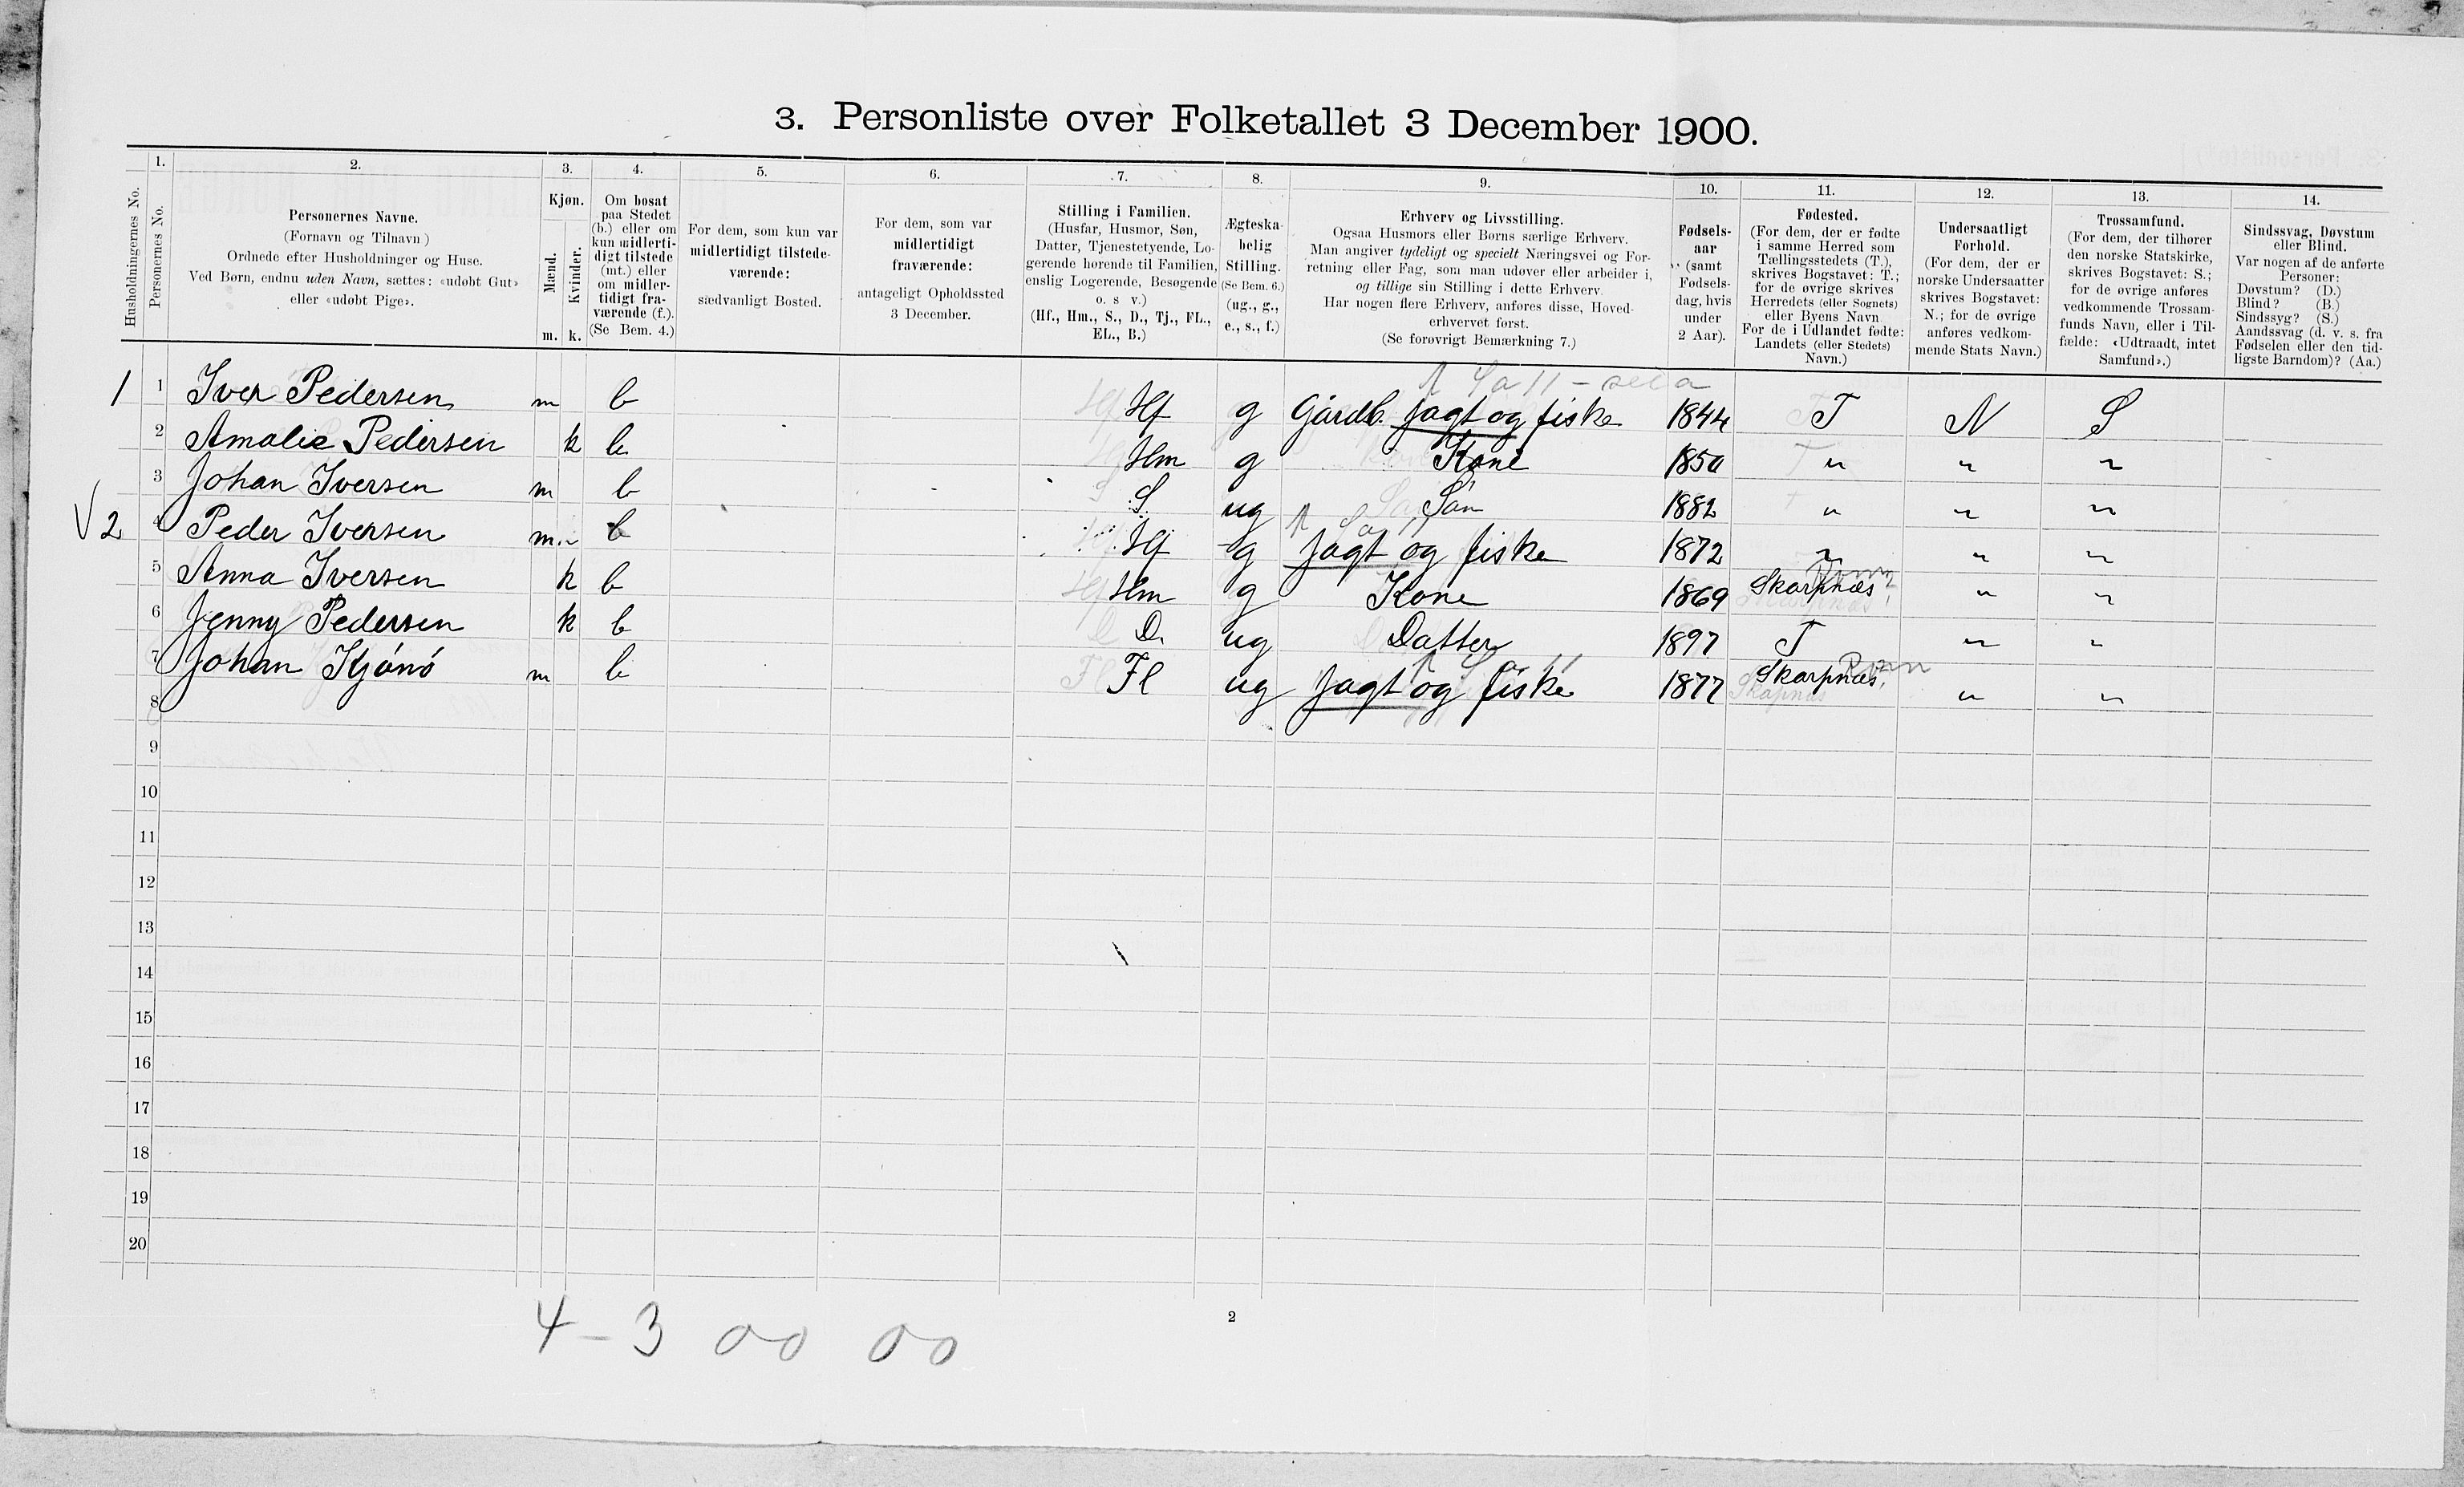 3. Personliste over Folketallet 3 December 1900.
Husholdningernes No.
1.
Personernes No.
2.
Personernes Navne.
(Fornavn og Tilnavn)
Ordnede efter Husholdninger og Huse.
Ved Børn, endnu uden Navn, sættes: «udøbt Gut»
eller «udøbt Pige».
3.
Kjøn.
Mænd.
Kvinder.
m. k.
4.
Om bosat
paa Stedet
(b.) eller om
kun midlerti-
digt tilstede
(mt.) eller
om midler-
tidigt fra-
værende (f.).
(Se Bem. 4.)
5.
For dem, som kun var
midlertidigt tilstede-
værende:
sædvanligt Bosted.
6.
For dem, som var
midlertidigt
fraværende:
antageligt Opholdssted
3 December.
7.
Stilling i Familien.
(Husfar, Husmor, Søn,
Datter, Tjenestetyende, Lo-
gerende hørende til Familien,
enslig Logerende, Besøgende
o. s v.)
(Hf., Hm., S., D., Tj., FL.,
EL., B.)
8.
Ægteska-
belig
Stilling.
(Se Bem. 6.)
(ug., g.,
e., s., f.)
9.
Erhverv og Livsstilling.
Ogsaa Husmors eller Børns særlige Erhverv.
Man angiver tydeligt og specielt Næringsvei og For-
retning eller Fag, som man udøver eller arbeider i,
og tillige sin Stilling i dette Erhverv.
Har nogen flere Erhverv, anføres disse, Hoved-
erhvervet først.
(Se forøvrigt Bemærkning 7.)
10.
Fødsels-
aar
(samt
Fødsels-
dag, hvis
under
2 Aar).
11.
Fødested.
(For dem, der er fødte
i samme Herred som
Tællingsstedets (T.),
skrives Bogstavet: T.;
for de øvrige skrives
Herredets (eller Sognets)
eller Byens Navn.
For de i Udlandet fødte:
Landets (eller Stedets)
Navn.)
12.
Undersaatligt
Forhold.
(For dem, der er
norske Undersaatter
skrives Bogstavet:
N.; for de øvrige
anføres vedkom-
mende Stats Navn.)
13.
Trossamfund.
(For dem, der tilhører
den norske Statskirke,
skrives Bogstavet: S.;
for de øvrige anføres
vedkommende Trossam-
funds Navn, eller i Til-
fælde: «Udtraadt, intet
Samfund».)
14.
Sindssvag, Døvstum
eller Blind.
Var nogen af de anførte
Personer:
Døvstum? (D.)
Blind? (B.)
Sindssyg? (S.)
Aandssvag (d. v. s. fra
Fødselen eller den tid-
ligste Barndom)? (Aa.)
1 1 Iver Pedersen m b Hf g Gårdb. jagt og fiske 1844 T N S
2 Amalie Pedersen k b Hm g Kone 1850 " " "
3 Johan Iversen m b S ug Sön 1882 " " "
2 4 Peder Iversen m b Hf g Jagt og fiske 1872 " " "
5 Anna Iversen k b Hm g Kone 1869 Skarpnæs " "
6 Jenny Pedersen k b D. ug Datter 1897 T " "
7 Johan Kjönö m b Fl ug Jagt og fiske 1877 Skarpnæs " "
8
9
10
11
12
13
14
15
16
17
18
19
20
4 - 3 00 00
2